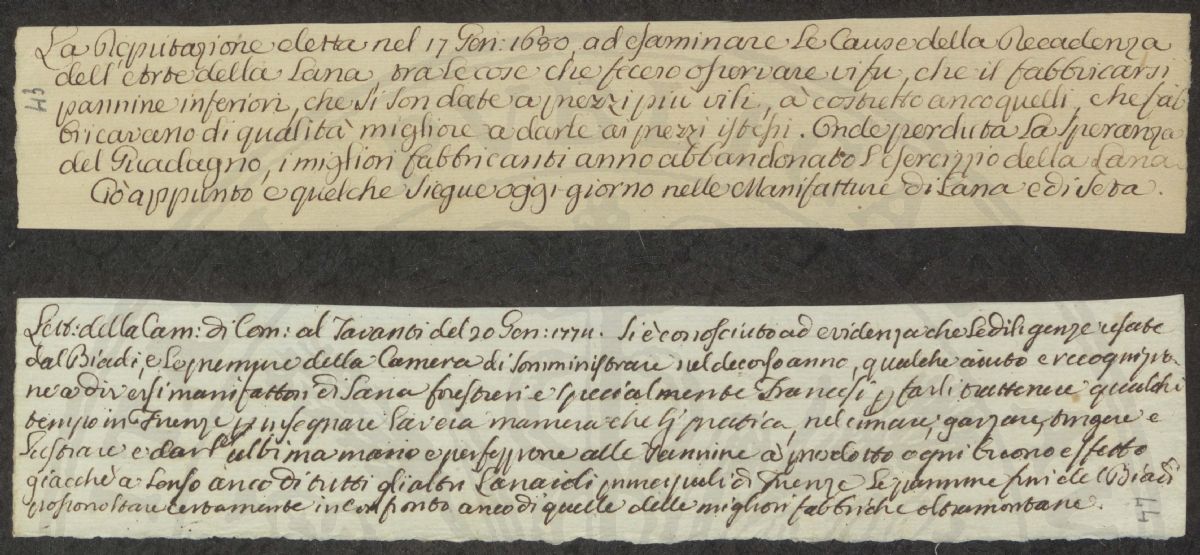 La Deputazione eletta nel 17 Gen: 1680, ad esaminare Le Cause della Decadenza
dell'Arte della Lana, tra le cose che fecero osservare vi fu, che il fabbricarsi
pannine inferiori, che si son date a prezzi più vili, à costretto anco quelli, che fab
bricavano di qualità migliore a darle ai prezzi istessi. Onde perduta la speranza
del Guadagno, i migliori fabbricanti anno abbandonato l'esercizzio della Lana
Ciò appunto e quel che siegue oggi giorno nelle Manifatture di Lana e di Seta.
43
Lett: della Cam: di Com: al Tavanti del 20 Gen: 1774. Si è conosciuto ad evidenza che le diligenze usate
dal Biadi, e le premure della Camera di somministrare nel decorso anno, qualche aiuto e recognizio-
ne a diversi manifattori di Lana forestieri e specialmente Francesi p farli trattenere qualche
tempo in Firenze p insegnare la vera maniera che si pratica, nel cimare, garzare, tingere e
lustrare e dar l'ultima mano e perfezzione alle Pannine à prodotto ogni buono effetto
giacchè a senso anco di tutti gli altri Lanaioli principali di Firenze le pannine fini del Biadi
possono stare certamente in confronto anco di quelle delle migliori fabbriche oltramontane.
44